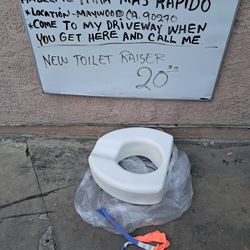 PARA MAS RAPIDO
*LOCATION-MAYWOOD CA. 90270
*COME TO MY DRIVEWAY WHEN
YOU GET HERE AND CALL ME
NEW TOILET RAISER
20